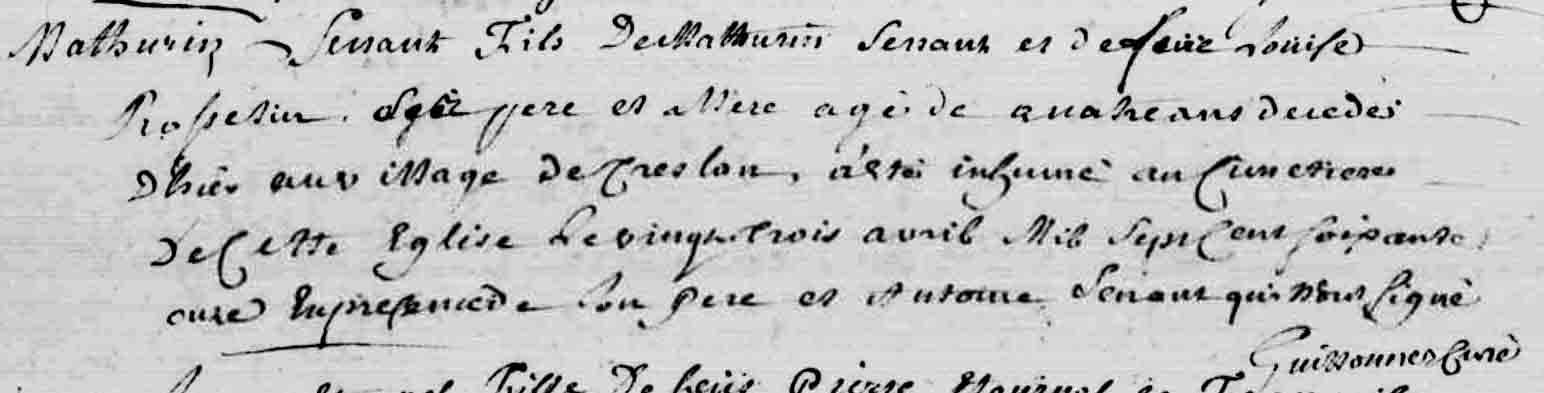 Mathurin Senant Fils De Mathurin Senant et de feüe Loüise
Rossetin. Ses pere et Mere agé de quatre ans decedés
D'hiér au village de Treslan, a été inhumé au Cimetiere
De Cette Eglise Le vingt trois avril Mil Sept Cent soixante
onze En presence de son Pere et Antoine Senant qui N'ont signé
Guissonnes Curé
fille De Loüis Pierre